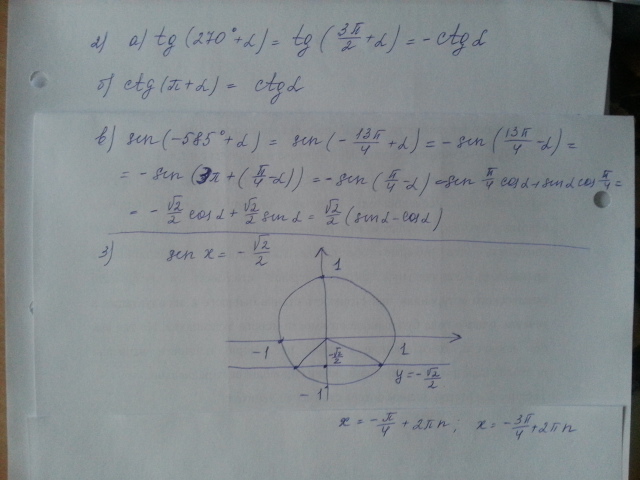 2) а) tg (270° + α) = tg (3π/2 + α) = - ctg α
б) ctg (π + α) = ctg α
в) sin (-585° + α) = sin (- 13π/4 + α) = - sin (13π/4 - α) =
= - sin (3π + (π/4 - α)) = - sin (π/4 - α) = sin π/4 cos α + sin α cos π/4 =
= - √2/2 cos α + √2/2 sin α = √2/2 (sin α - cos α)
3) sin x = - √2/2
1
-1
1
-√2/2
y = -√2/2
-1
x = - π/4 + 2πn; x = - 3π/4 + 2πn